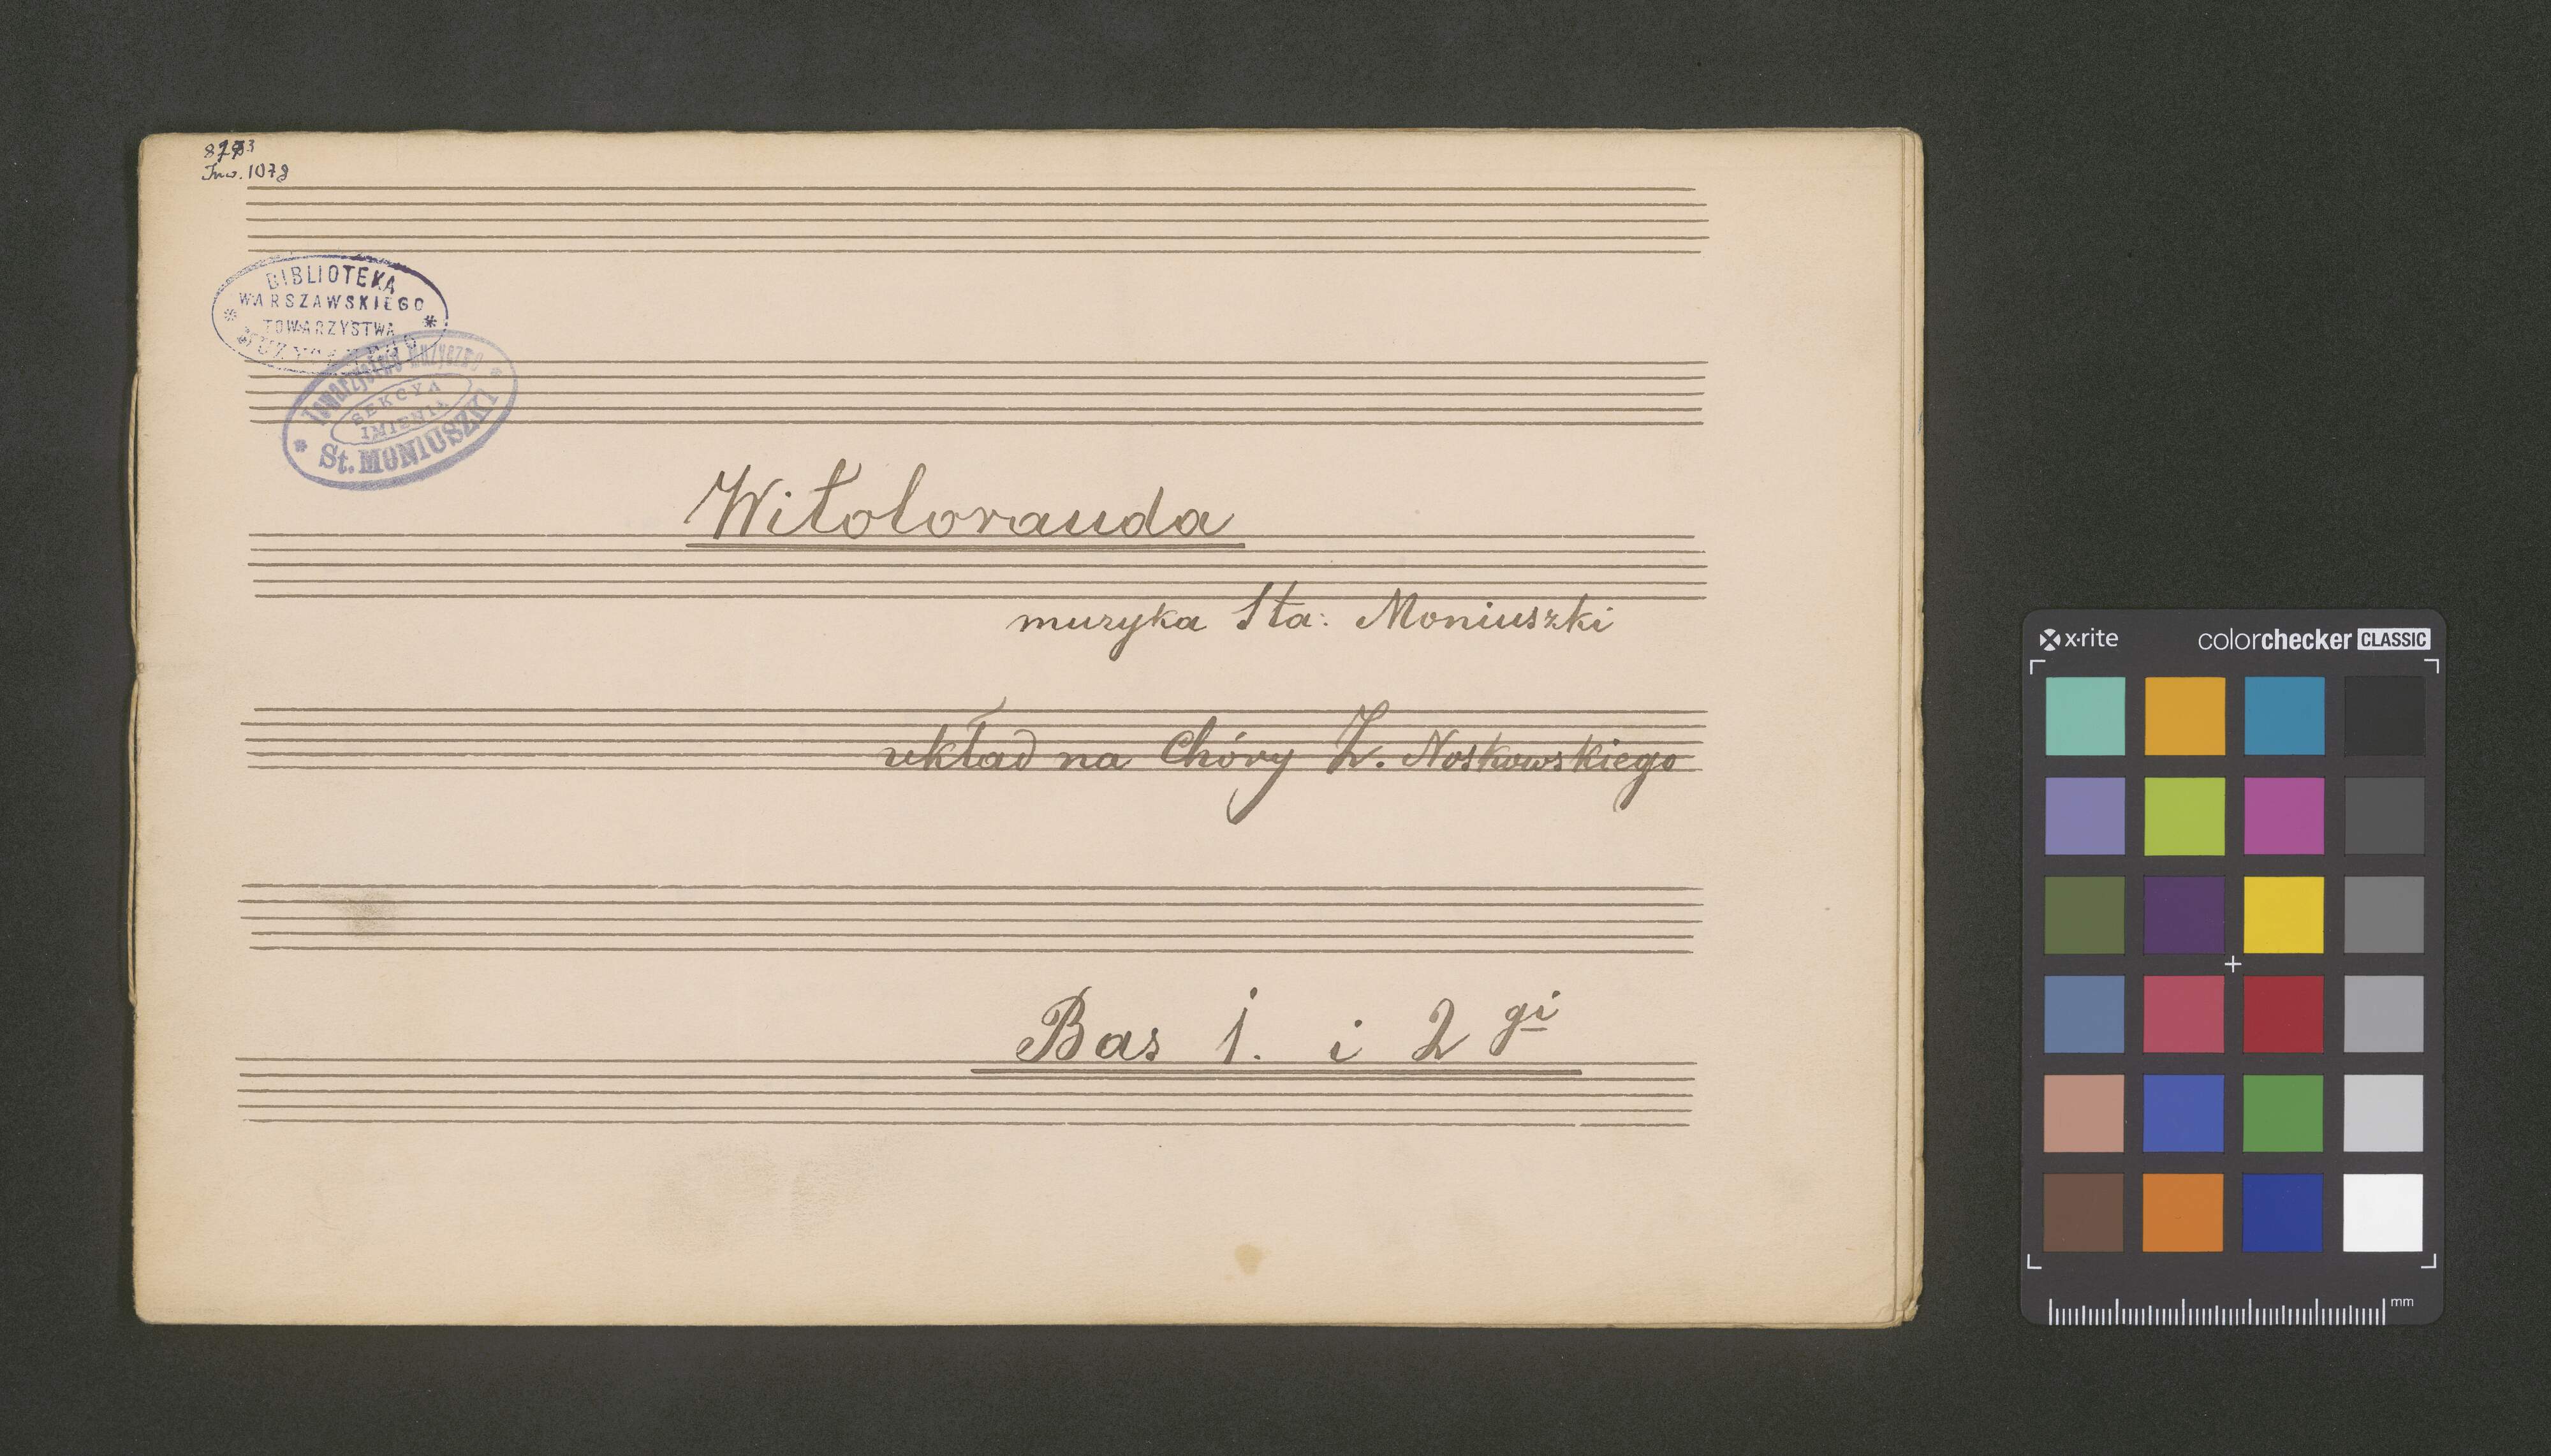 Inw. 1078
BIBLIOTEKA
WARSZAWSKIEGO
TOWARZYSTWA
MUZYCZNEGO
Towarzystwo Muzyczne
SEKCYA
IMIENIA
St. MONIUSZKI
Witolorauda
muzyka Sta: Moniuszki
układ na Chóry Z. Noskowskiego
Bas 1. i 2 gi
x-rite
colorchecker CLASSIC
mm